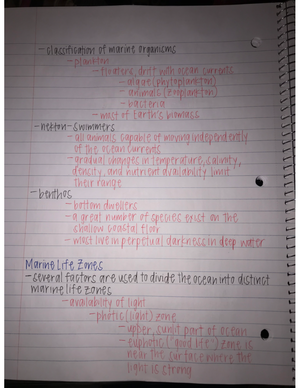 - classification of marine organisms
- plankton
- floaters, drift with ocean currents
- algae (phytoplankton)
- animals (zooplankton)
- bacteria
- most of Earth's biomass
- nekton - swimmers
- all animals capable of moving independently
of the ocean currents
- gradual changes in temperature, salinity,
density, and nutrient availability limit
their range
- benthos
- bottom dwellers
- a great number of species exist on the
shallow coastal floor
- most live in perpetual darkness in deep water
Marine Life Zones
- several factors are used to divide the ocean into distinct
marine life zones
- availability of light
- photic (light) zone
- upper, sunlit part of ocean
- euphotic ("good lit") zone is
near the surface where the
light is strong